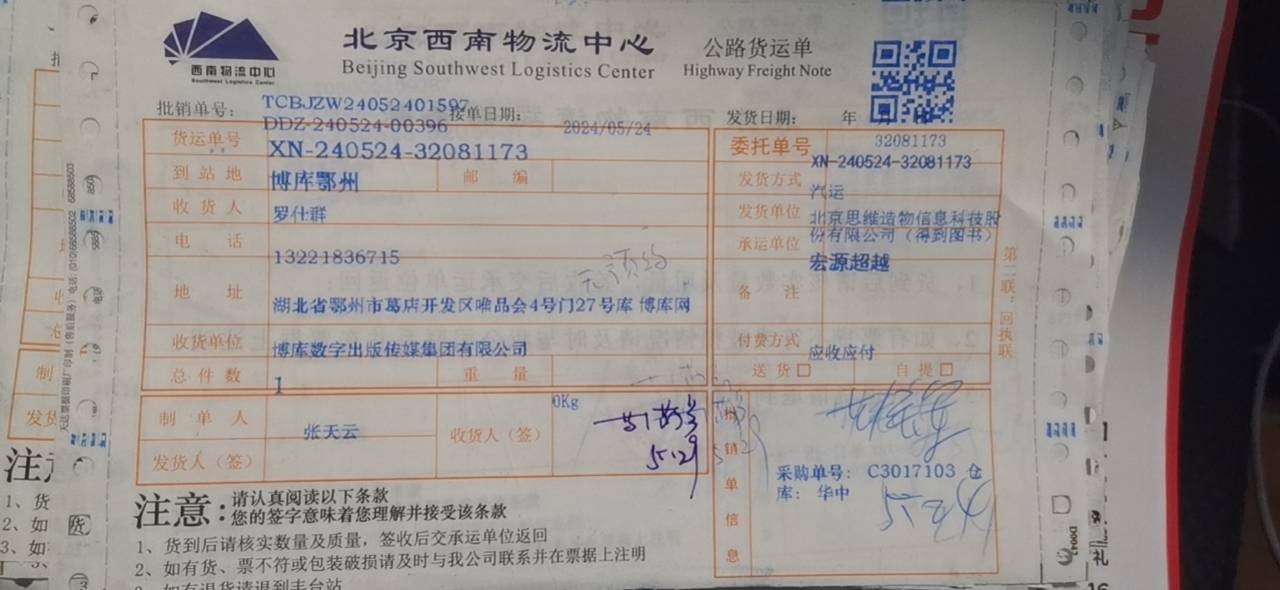 西南物流中心
Southwest Logistics Center
北京西南物流中心
Beijing Southwest Logistics Center
公路货运单
Highway Freight Note
批销单号: TCBJZW24052401597
接单日期: 2024/05/24
发货日期: 年 月
DDZ-240524-00396
货运单号 XN-240524-32081173
委托单号 32081173
XN-240524-32081173
到站地 博库鄂州 邮编
发货方式 汽运
收货人 罗仕群
发货单位 北京思维造物信息科技股份有限公司(得到图书)
电话 13221836715
承运单位 宏源超越
无预约
地址 湖北省鄂州市葛店开发区唯品会4号门27号库 博库网
备注
收货单位 博库数字出版传媒集团有限公司
付费方式 应收应付
总件数 1 重量 0Kg
送货 自提
制单人 张天云
收货人(签)
5.29
发货人(签)
批销单信息
采购单号: C3017103 仓
库: 华中
第二联:回执联
注意:
请认真阅读以下条款
您的签字意味着您理解并接受该条款
1、货到后请核实数量及质量,签收后交承运单位返回
2、如有货、票不符或包装破损请及时与我公司联系并在票据上注明
3、如有退货请退到丰台站